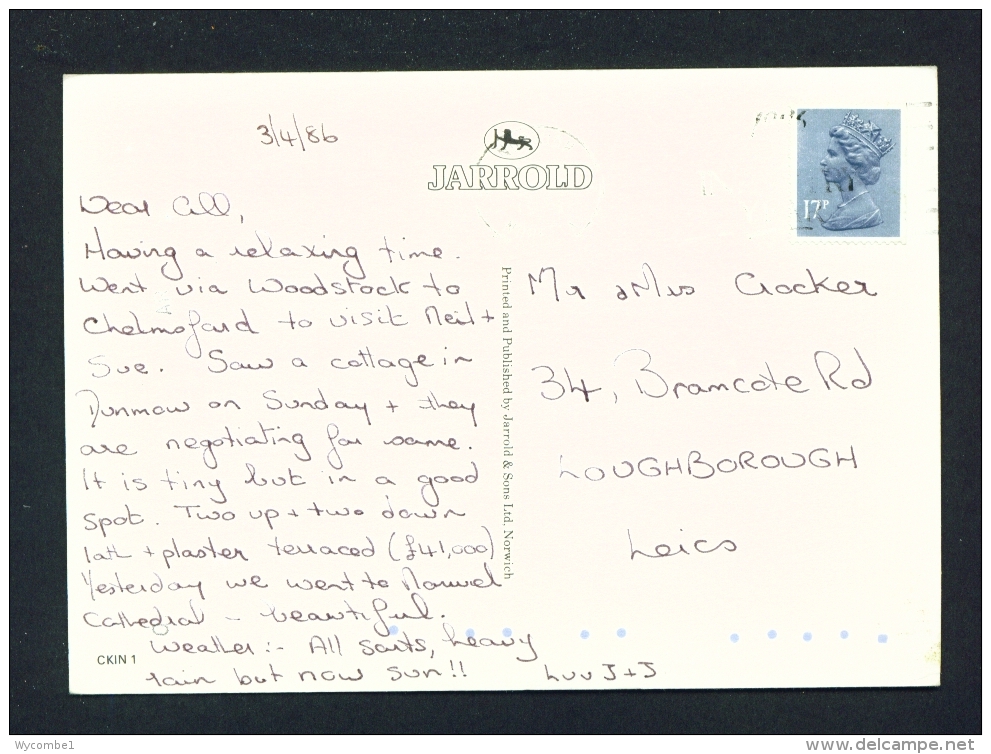 3/4/86
JARROLD
17P
Dear All,
Having a relaxing time.
Went via Woodstock to
Chelmsford to visit Neil +
Sue. Saw a cottage in
Dunmow on Sunday + they
are negotiating for same.
It is tiny but in a good
spot. Two up + two down
lath + plaster terraced (£41,000)
Yesterday we went to
Cathedral - beautiful.
Weather :- All sorts, heavy
rain but now sun!!
Luv J+J
Printed and Published by Jarrold & Sons Ltd, Norwich
Mr & Mrs Crocker
34, Bramcote Rd
LOUGHBOROUGH
Leics
CKIN 1
Wycombe1
www.delcampe.net